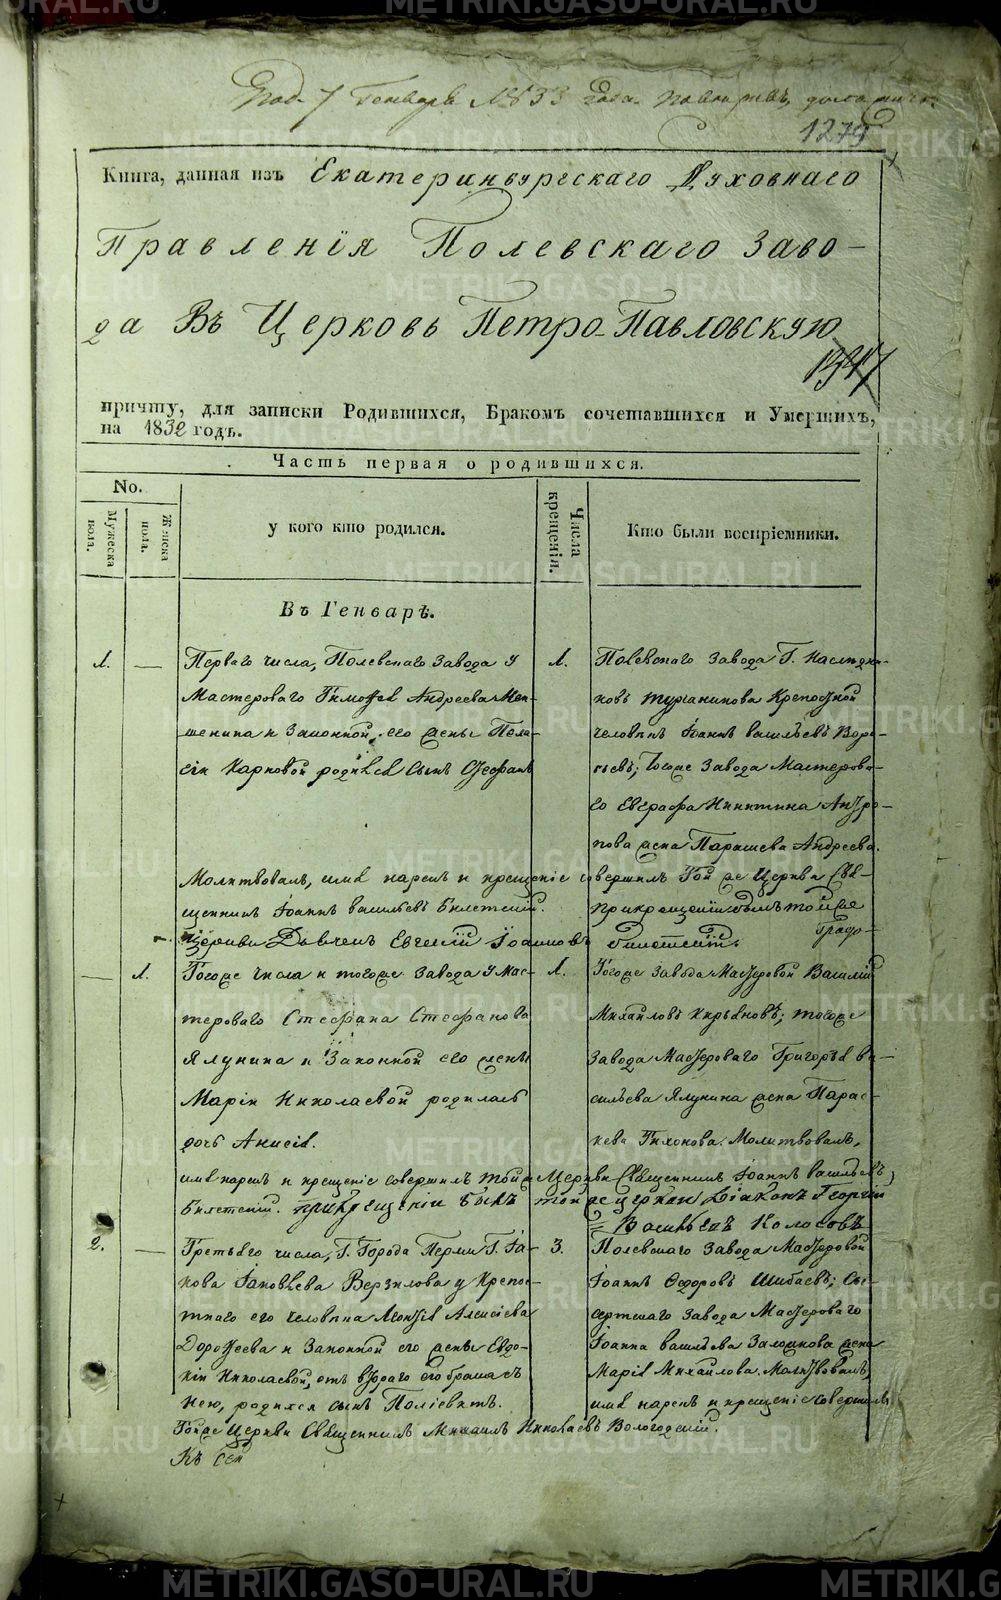 METRIKI.GASO-URAL.RU
7 Генваря 1833 года
1279
Книга, данная изъ Екатеринбургскаго Духовнаго
Правленія Полевскаго Заво-
да Въ Церковь Петро-Павловскую
1347
причту, для записки Родившихся, Бракомъ сочетавшихся и Умершихъ,
на 1832 годъ.
Часть первая о родившихся.
No.
Мужеска пола.
Женска пола.
у кого кто родился.
Числа крещенія.
Кто были воспріемники.
Въ Генварѣ.
1. —
Перваго числа, Полевскаго Завода у
Мастероваго Тимофея Андреева Мен-
шенина и Законной его жены Пела-
гіи Карповой родился сынъ Стефанъ
1.
Полевскаго Завода Г. Наслѣдни-
ковъ Турчанинова Крепостной
человѣкъ Іоаннъ Васильевъ
тогоже Завода Мастерова-
го Евграфа Никитина Антро-
пова жена Параскева Андреева.
Молитвовалъ, имя нарекъ и крещеніе совершилъ Той же Церкви Свя-
щенникъ Іоаннъ Васильевъ Билетскій. При крещеніи былъ тойже
Церкви Іоанновъ
— 1.
Тогоже числа и тогоже Завода у Мас-
тероваго Стефана Стефанова
Ялунина и Законной его жены
Маріи Николаевой родилась
дочь Анисія.
1.
Тогоже Завода Мастеровой Василій
Михайловъ Кирьяновъ; тогоже
Завода Мастероваго Григорья Ва-
сильева Ялунина жена Парас-
кева Тихонова. Молитвовалъ,
имя нарекъ и крещеніе совершилъ тойже Церкви Священникъ Іоаннъ Васильевъ
Билетскій. При крещеніи былъ тойже церкви Діаконъ Георгій
Васильевъ Колосовъ
2. —
Третьяго числа, Г. Города Перми Г. Іа-
кова Іаковлева Верзилова у Крепос-
тнаго его человѣка Леонтія Алексіева
Дорофеева и Законной его жены Евдо-
кіи Николаевой, отъ втораго его брака съ
нею, родился сынъ Поліевктъ.
3.
Полевскаго Завода Мастеровой
Іоаннъ Федоровъ Шибаевъ; Сы-
сертскаго Завода Мастероваго
Іоанна Васильева жена
Марія Михайлова. Молитвовалъ,
имя нарекъ и крещеніе совершилъ
Тойже Церкви Священникъ Михаилъ Николаевъ Вологодскій.
Къ сей